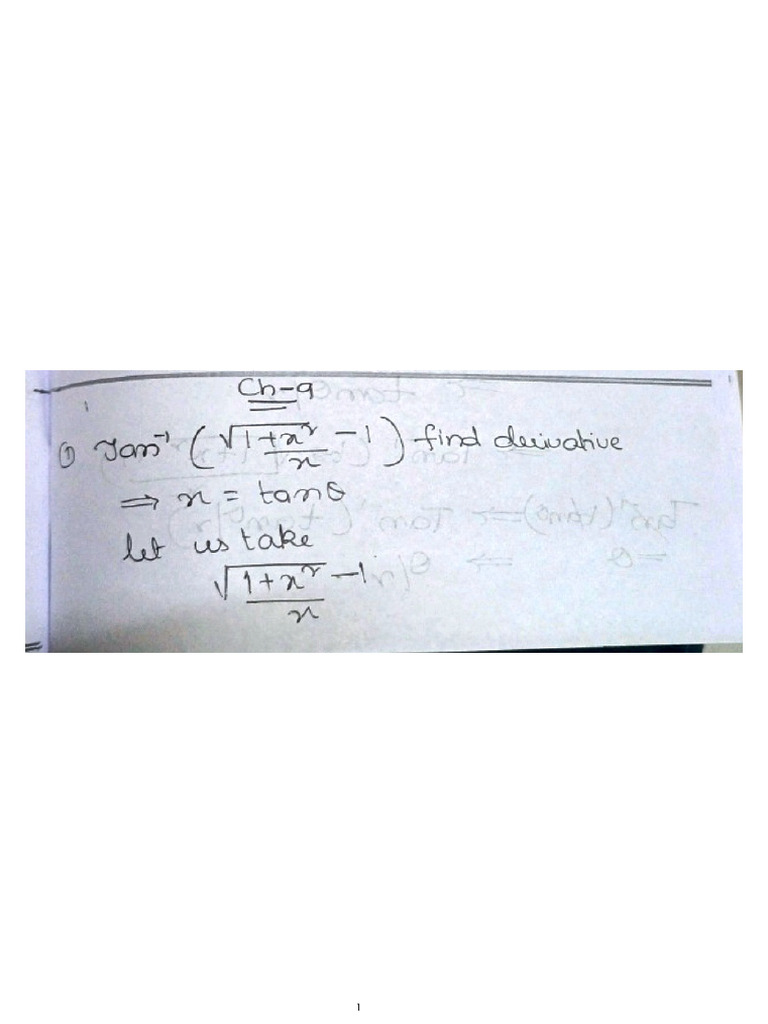 Ch-9
① Tan⁻¹ (√1+x² -1 / x) find derivative
⇒ x = tanθ
let us take
√1+x² -1 / x
1